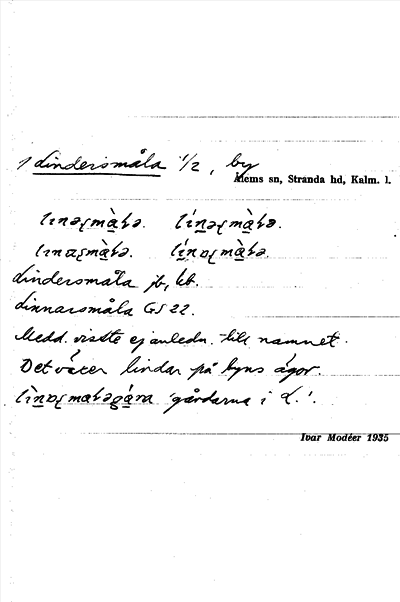 1 Lindersmåla 1/2, by
Ålems sn, Stranda hd, Kalm. l.
Lindersmåla jb, kb.
Linnarsmåla GS 22.
Medd. visste ej anledn. till namnet.
Det växer lindar på byns ägor.
'gårdarna i L.'.
Ivar Modéer 1935